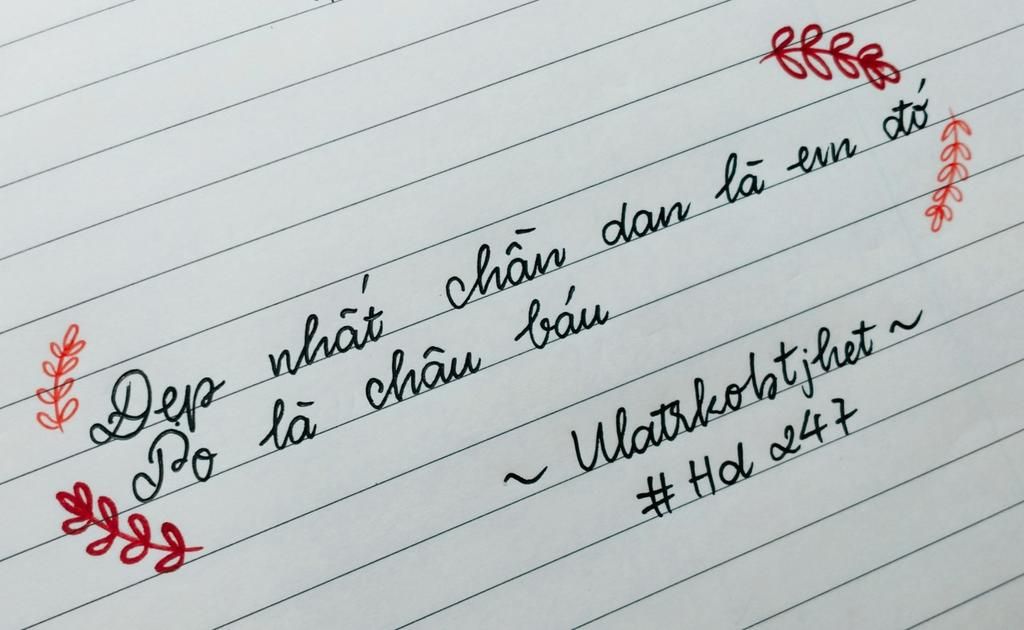 Đẹp nhất chần dan là em đó
Po là châu báu
~ Ulatrkobtjhet ~
# Hd 247